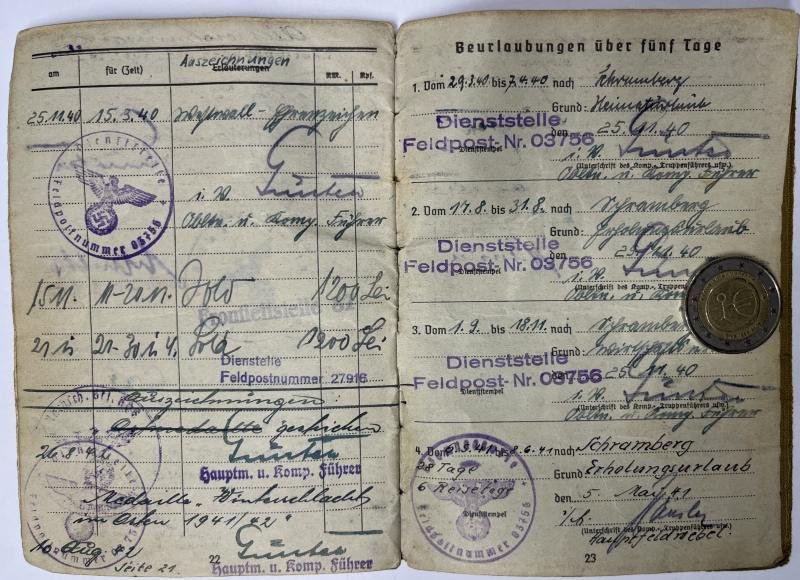 Auszeichnungen
am für (Zeit) Erläuterungen RM. Rpf.
25.11.40 15.3.40 Westwall-Ehrenzeichen
Dienststelle
Feldpostnummer 03756
i.V. Günter
Obltn. u. Komp. Führer
15.11. 11-20.11. Sold 1200 Lei
Frontleitstelle
21-30.11. Sold 1200 Lei
Dienststelle
Feldpostnummer 27916
Auszeichnungen:
gestrichen
26.8.42 Günter
Hauptm. u. Komp. Führer
Medaille "Winterschlacht
im Osten 1941/42"
10. Aug. 42 Günter
Seite 21. 22 Hauptm. u. Komp. Führer
Beurlaubungen über fünf Tage
1. Vom 29.3.40 bis 7.4.40 nach Schramberg
Grund: Heimaturlaub
Dienststelle
den 25.11.40
Feldpost-Nr. 03756
Dienststempel i.V. Günter
(Unterschrift des Komp.-, Truppenführers usw.)
Obltn. u. Komp. Führer
2. Vom 17.8. bis 31.8. nach Schramberg
Grund: Erholungsurlaub
Dienststelle
den 25.11.40
Feldpost-Nr. 03756
Dienststempel i.V.
(Unterschrift des Komp.-
Obltn. u.
3. Vom 1.9. bis 18.11. nach Schramberg
Grund:
Dienststelle
den 25.11.40
Feldpost-Nr. 03756
Dienststempel i.V. Günter
(Unterschrift des Komp.-, Truppenführers usw.)
Obltn. u. Komp. Führer
4. Vom bis 8.6.41 nach Schramberg
28 Tage
Grund: Erholungsurlaub
6 Reisetage
den 5. Mai 41
Dienststempel
(Unterschrift des Komp.-, Truppenführers usw.)
Hauptfeldwebel.
Feldpostnummer 03756
23